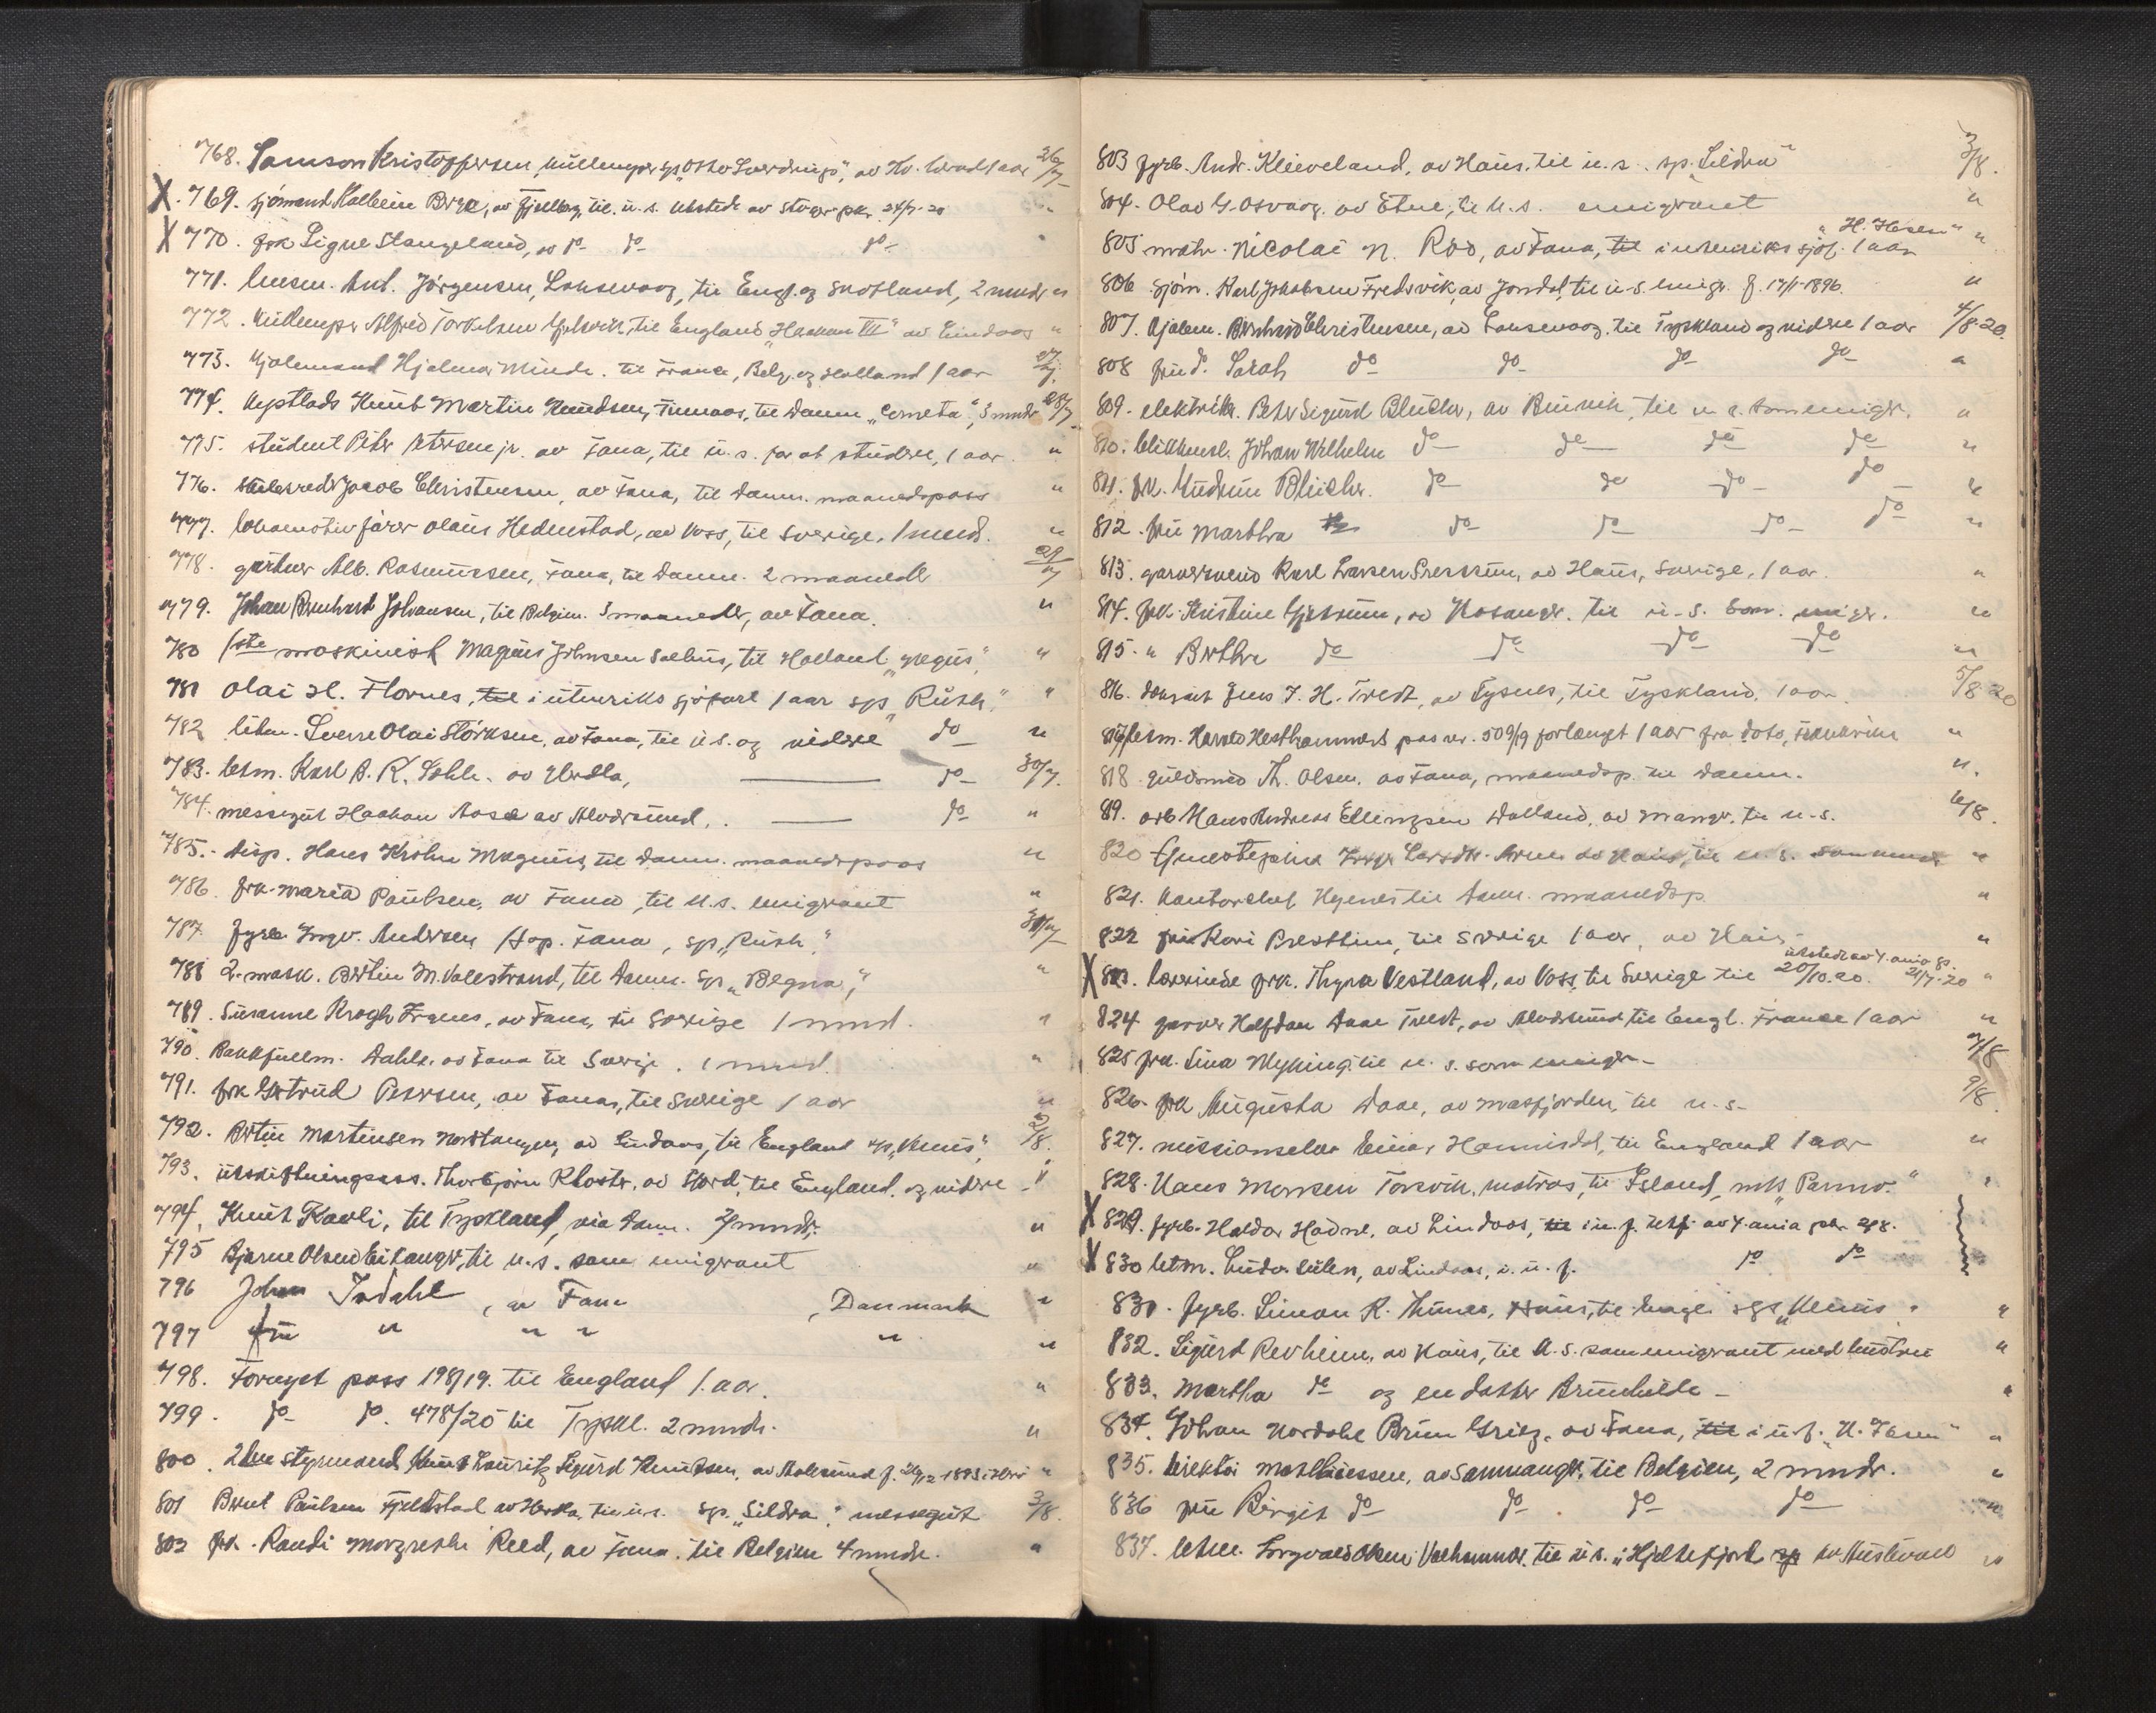 768. Samson Kristoffersen, Otto Sverdrup", av 1 aar 26/7
X. 769. sjømand Halleim Berge, av Fjelberg, til u.s. utstedt av Stvgr. pk. 24/7-20 "
X 770. frk Signe Stangeland, av do do do "
771. Ant. Jørgensen, Laksevaag, til Engl. og Skotland, 2 mndr "
772. Alfred Torkelsen til England "Haakon VII" av Lindaas "
773. Hjalmar Minde. til France, Belg. og Holland 1 aar 27/7.
774. Knut Martin Knudsen, til Danm. "Cometa", 3 mndr 28/7
775. student Peter Petersen jr. av Fana, til u.s. for at studere, 1 aar. "
776. Jacob Christensen, av Fana, til Danm. maanedspass "
777. lokomotivfører Olaus Hedenstad, av Voss, til Sverige, 1 mnd. "
778. gartner Alb. Rasmussen, Fana, til Danm. 2 maaneder 29/7
779. Johan Bernhard Johansen, til Belgien. 3 maaneder, av Fana. "
780 1ste maskinist Magnus Johnsen Salhus, til Holland "Negus", "
781 Olai H. Flornes, til i utenriks sjøfart 1 aar sps "Ruth." "
782 Sverre Olai Størksen, av Fana, til u.s. og videre do "
783. letm. Karl B. K. av Herdla, — do 30/7.
784. messegut Haakon Aase av Alversund, . — do "
785. - disp. Hans Krohn Magnus, til Danm. maanedspass "
786. frk. Maria Paulsen, av Fana, til U.s. emigrant "
787. fyrb. Ingv. Andersen Hop. Fana, sp. "Ruth". 31/7
788 2. mask. Bertin M. Valestrand, til Danm. sps "Begna", "
789. Susanne Krogh av Fana, til Sverige 1 mnd. "
790. Dahle, av Fana til Sverige. 1 mnd. "
791. frk Gertrud Petersen, av Fana, til Sverige 1 aar "
792. Bertin Martinsen Nordtangen, av Lindaas, til England sps "Venus", 2/8.
793. utskiftningsass. Thorbjørn Kloster, av Stord, til England, og videre "
794, Knut Kavli, til Tyskland, via Danm. mndr. "
795 Bjarne Olsen Eikanger, til u.s. som emigrant "
796 Johan , av Fana , Danmark "
797 fru " " " " "
798. Fornyet pass 198/19. til England 1. aar. "
799. do do. 478/20 til Tyskl. 2 mndr. "
800. 2den styrmand Lauritz Sigurd Knudsen, av Aalesund f. 1893 "
801 Bernt Paulsen Fjeldstad av Herdla, til u.s. sps. "Sildra". messegut 3/8.
802 frk. Randi Margrethe Reed, av Fana. til Belgien 4 mndr. "
803 fyrb. Andr. Kleiveland, av Haus, til u.s. sp. "Sildra" 3/8.
804. Olav G. Osvaag. av Etne, til U.s. emigrant "
"H. Hasen"
805 matr. Nicolai N. Röd, av Fana, til i utenriks sjöf. 1 aar "
806 sjøm. Karl Jakobsen Fredsvik, av Jondal, til u.s. emigr. f. 17/1-1896. "
807. Bernhard Christensen, av Laksevaag. til Tyskland og videre 1 aar 4/8.20.
808 fru do. Sarah do do do do "
809. elektrik. Peter Sigurd Blücher, av Bruvik, til u.s. som emigr. "
810. Johan Wilhelm do do do do "
811. frk. Gudrun Blücher. do do do do "
812. fru Martha do do do do "
813. garversvend Karl Larsen av Haus, Sverige, 1 aar. "
814. frk. Kristine Gjessum, av Hosanger. til u.s. som. emigr. "
815. " Berthe do do do do "
816. Jens J. H. Tvedt, av Tysnes, til Tyskland, 1 aar 5/8 20
817 letm. pas nr. 509/19 forlænget 1 aar fra dato, "
818 guldsmed Th. Olsen, av Fana, maanedsp. til Danm. "
819. arb Hans Andreas Ellingsen av Manger. til u.s. 6/8.
820 av Haus, til u.s. "
821. Kontorchef til Danm. maanedsp. "
822 fru Kari Bresthim, til Sverige 1 aar, av Haus "
utstedt av X.ania ps. 24/7-20
X 823. lærerinde frk. Thyra Vestland, av Voss, til Sverige til 20/10.20. "
824 garver Halfdan Daae Tvedt, av Alversund til Engl. France 1 aar "
825 frk. Lina Myking. til u.s. som emigr- 7/8
826. frk Augusta Daae, av Masfjorden, til u.s- 9/8.
827. missionselev Einar Hannisdal, til England 1 aar "
828. Hans Monsen Torsvik, matros, til Island, mk "Parmo." "
X 829. fyrb. Haldor av Lindaas, til i u. f. utst. av X.ania
X 830 letm. av Lindaas, i. u. f. do do
831. fyrb. Simon R. Thunes, Haus, til Engl. sps "Venus" "
832. Sigurd Revheim, av Haus, til U.s. som emigrant med hustru "
833. Martha do og en datter Brunhilde - "
834. Johan Nordahl Brun Grieg. av Fana, til i u.f. "H. Hasen" "
835. direktør Mathiessen, av Samnanger, til Belgien, 2 mndr. "
836 fru Birgit do do do do "
837. Torgvald Olsen til u.s. "Hjeltefjord"